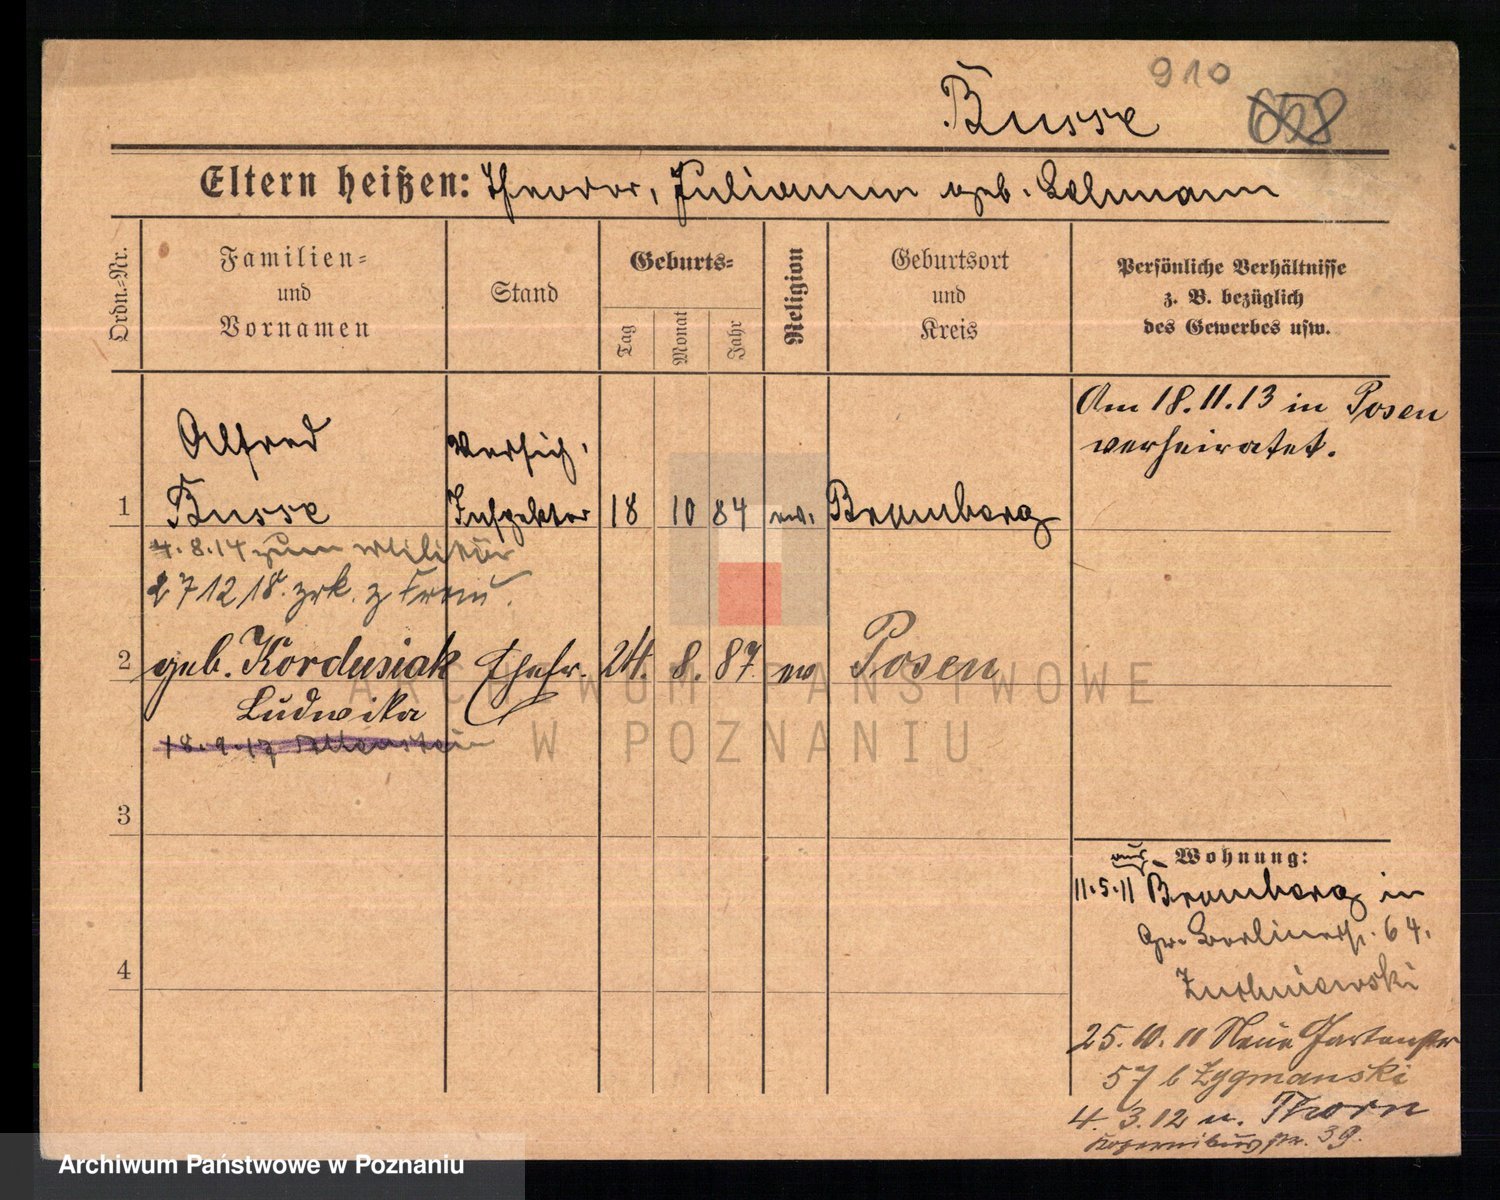 910
Busse 658
Eltern heißen: Theodor, Julianna geb. Lehmann
Ordn.-Nr.
Familien-
und
Vornamen
Stand
Geburts-
Tag
Monat
Jahr
Religion
Geburtsort
und
Kreis
Persönliche Verhältnisse
z. B. bezüglich
des Gewerbes usw.
Am 18.11.13 in Posen
verheiratet.
Alfred Versich.
1 Busse Inspektor 18 10 84 ev. Bromberg
4.8.14 zum Militär
27 12 18. zrk. z Frau.
2 geb. Kordusiak Ehefr. 24. 8. 87. ev Posen
Ludwika
18.9.17 Allenstein
3
4
Wohnung:
aus
11.5.11 Bromberg in
Gr. Berlinerstr. 64.
25.10.11 Neue Gartenstr
57 b Zygmanski
4.3.12 n. Thorn
39.
ARCHIWUM PAŃSTWOWE
W POZNANIU
Archiwum Państwowe w Poznaniu